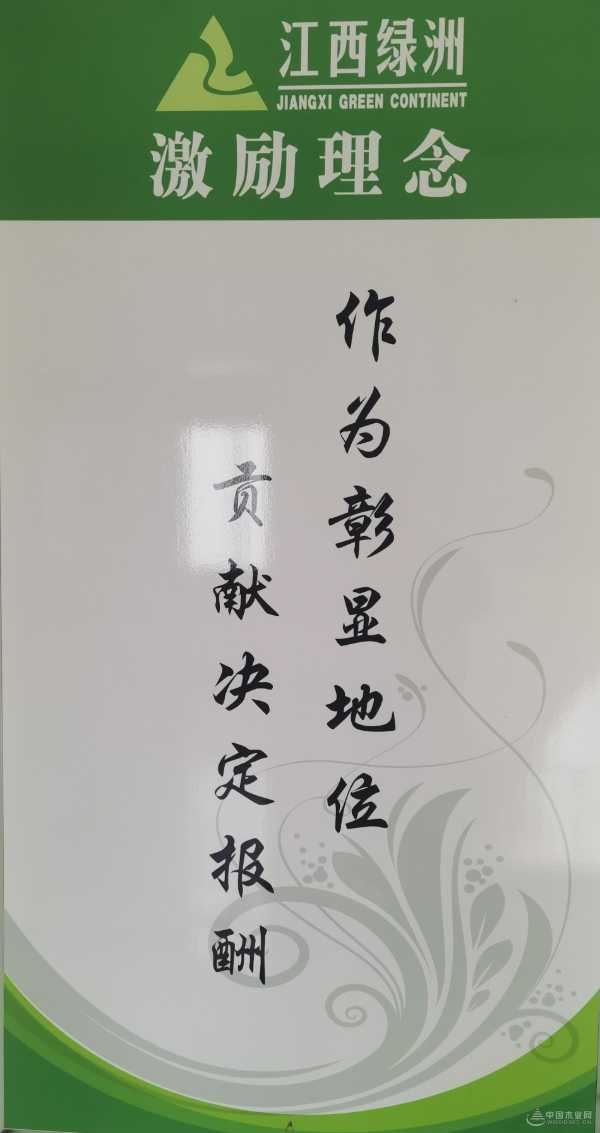 江西绿洲
JIANGXI GREEN CONTINENT
激励理念
作为彰显地位
贡献决定报酬
中国木业网